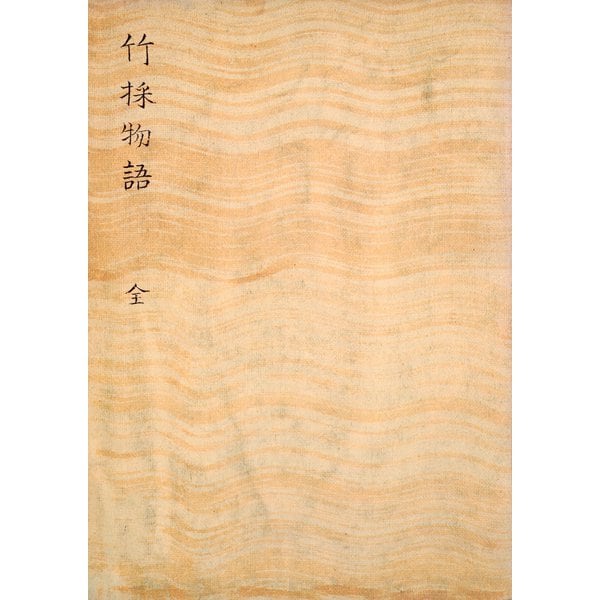 竹採物語
全